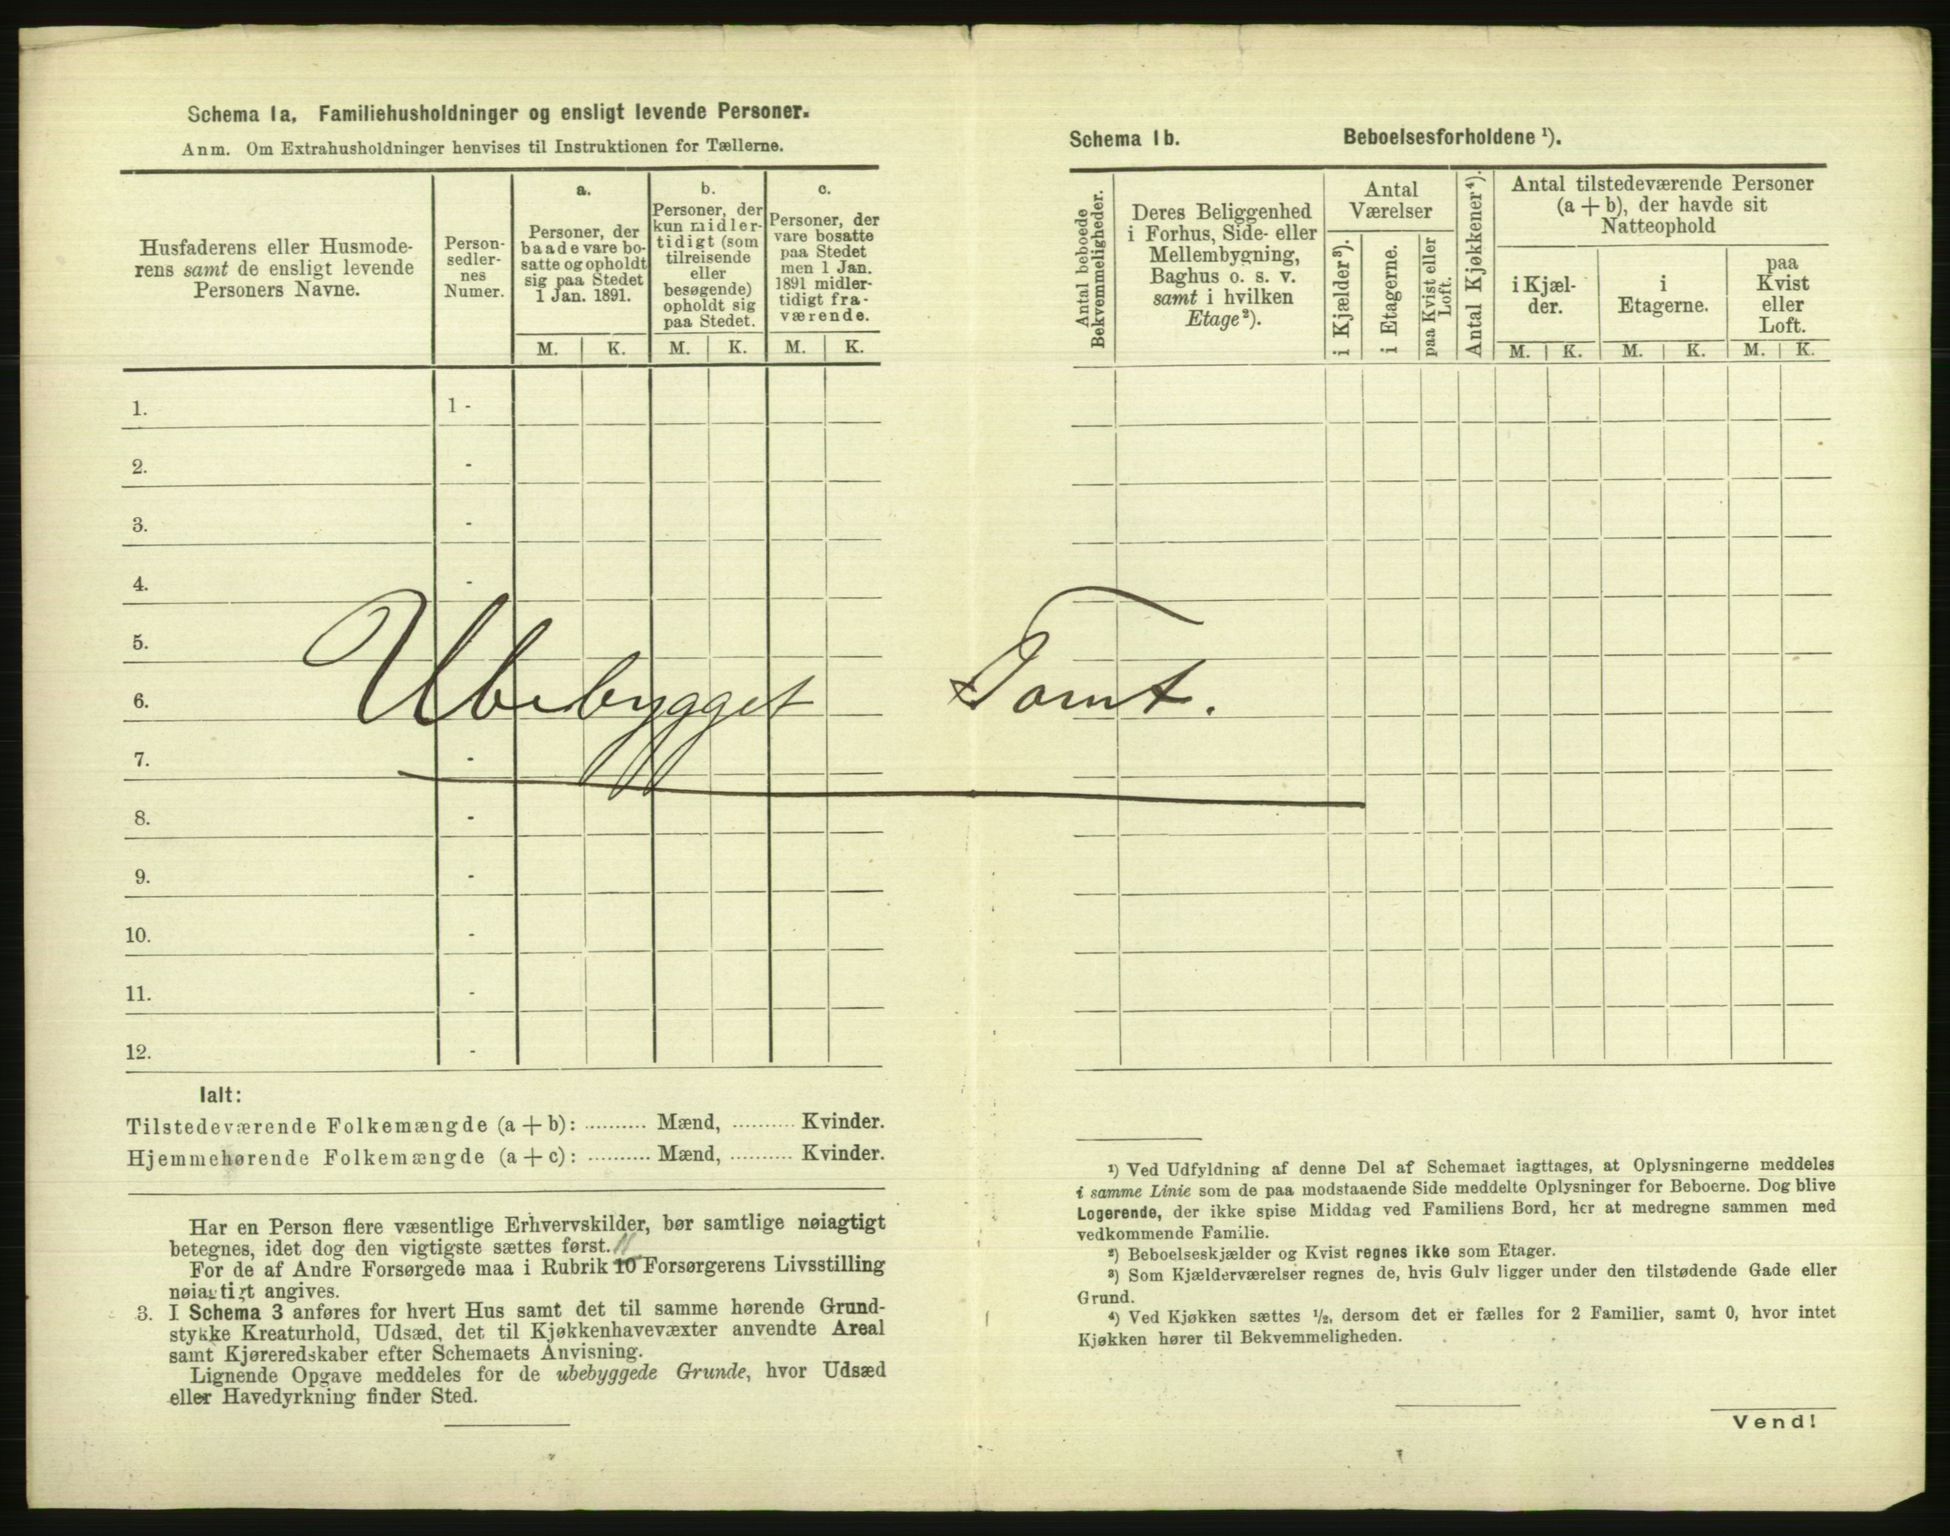 Schema 1a. Familiehusholdninger og ensligt levende Personer.
Anm. Om Extrahusholdninger henvises til Instruktionen for Tællerne.
Husfaderens eller Husmode-
rens samt de ensligt levende
Personers Navne.
Person-
sedler-
nes
Numer.
a.
Personer, der
baade vare bo-
satte og opholdt
sig paa Stedet
1 Jan. 1891.
b.
Personer, der
kun midler-
tidigt (som
tilreisende
eller
besøgende)
opholdt sig
paa Stedet.
c.
Personer, der
vare bosatte
paa Stedet
men 1 Jan.
1891 midler-
tidigt fra-
værende.
M. K. M. K. M. K.
1. 1 -
2. -
3. -
4. -
5.
6.
7. -
8. -
9. -
10. -
11. -
12. -
Ubebygget Tomt.
Ialt:
Tilstedeværende Folkemængde (a + b): .......... Mænd, .......... Kvinder.
Hjemmehørende Folkemængde (a + c): .......... Mænd, .......... Kvinder.
Har en Person flere væsentlige Erhvervskilder, bør samtlige nøiagtigt
betegnes, idet dog den vigtigste sættes først.
11
For de af Andre Forsørgede maa i Rubrik 10 Forsørgerens Livsstilling
nøiagtigt angives.
3. I Schema 3 anføres for hvert Hus samt det til samme hørende Grund-
stykke Kreaturhold, Udsæd, det til Kjøkkenhavevæxter anvendte Areal
samt Kjøreredskaber efter Schemaets Anvisning.
Lignende Opgave meddeles for de ubebyggede Grunde, hvor Udsæd
eller Havedyrkning finder Sted.
Schema 1b. Beboelsesforholdene ¹).
Antal beboede
Bekvemmeligheder.
Deres Beliggenhed
i Forhus, Side- eller
Mellembygning,
Baghus o. s. v.
samt i hvilken
Etage²).
Antal
Værelser
i Kjælder³).
i Etagerne.
paa Kvist eller
Loft.
Antal Kjøkkener⁴).
Antal tilstedeværende Personer
(a + b), der havde sit
Natteophold
i Kjæl-
der.
i
Etagerne.
paa
Kvist
eller
Loft.
M. K. M. K. M. K.
¹) Ved Udfyldning af denne Del af Schemaet iagttages, at Oplysningerne meddeles
i samme Linie som de paa modstaaende Side meddelte Oplysninger for Beboerne. Dog blive
Logerende, der ikke spise Middag ved Familiens Bord, her at medregne sammen med
vedkommende Familie.
²) Beboelseskjælder og Kvist regnes ikke som Etager.
³) Som Kjælderværelser regnes de, hvis Gulv ligger under den tilstødende Gade eller
Grund.
⁴) Ved Kjøkken sættes ½, dersom det er fælles for 2 Familier, samt 0, hvor intet
Kjøkken hører til Bekvemmeligheden.
Vend!